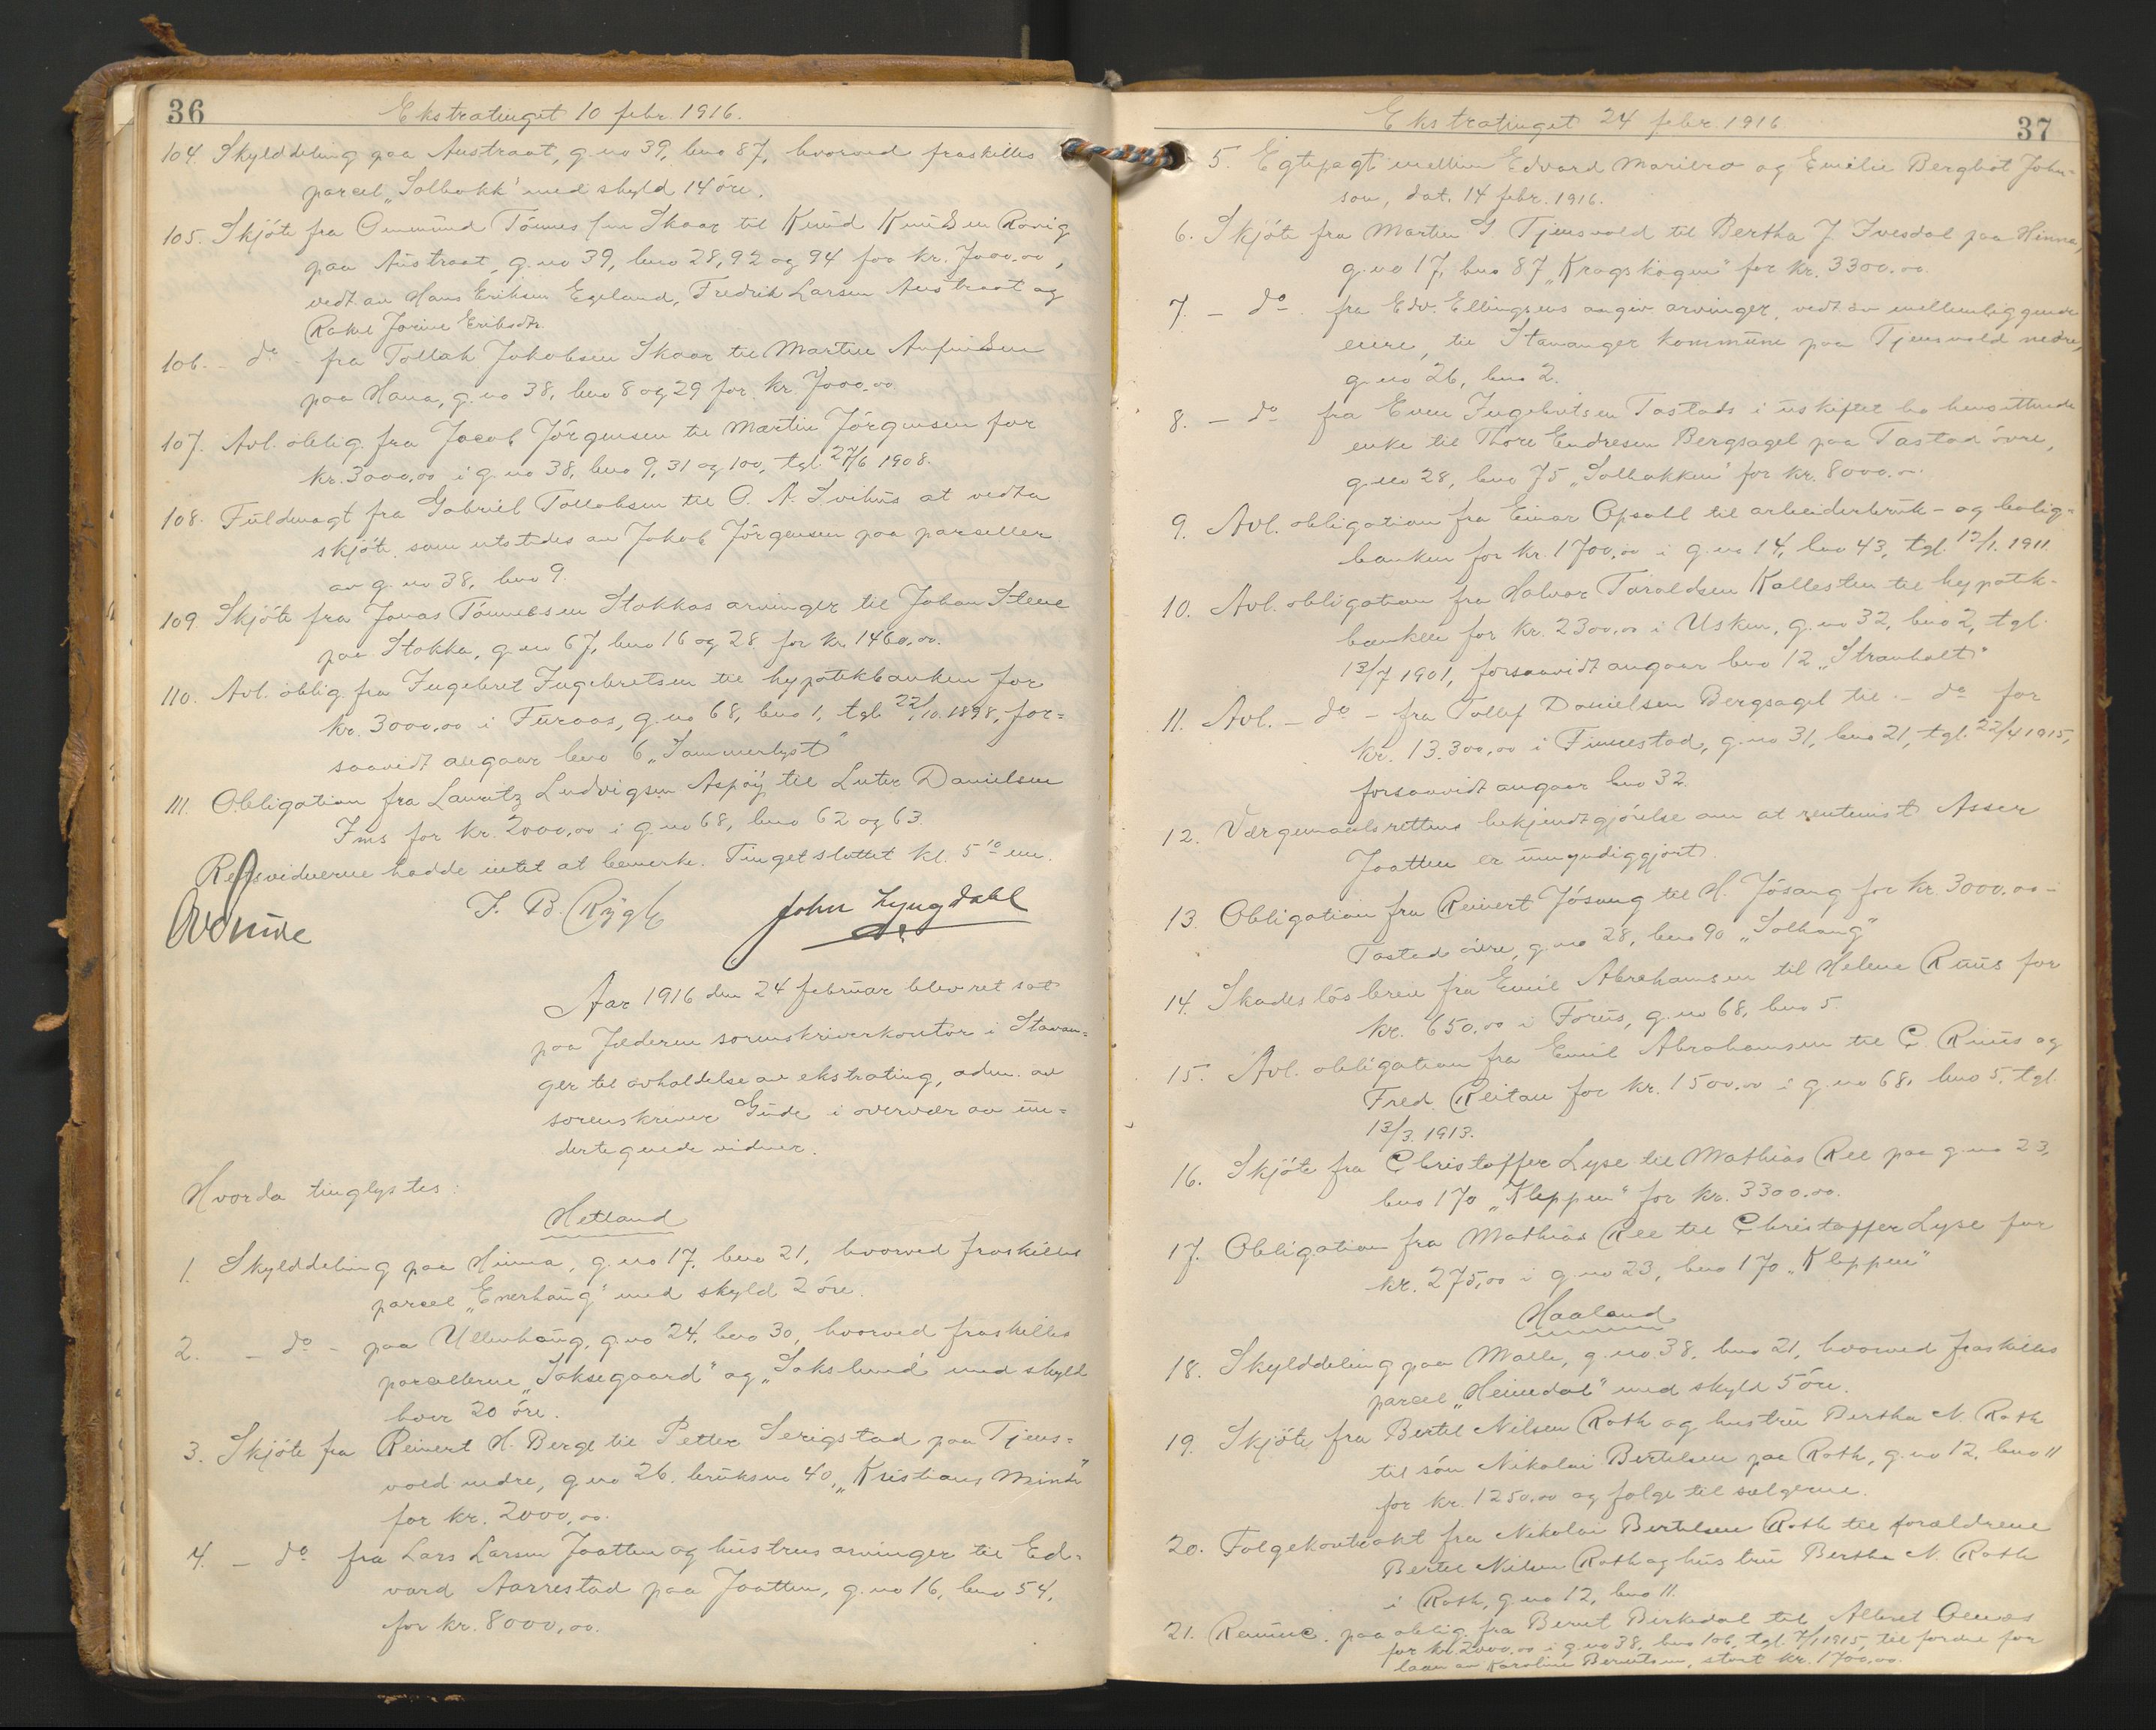 36
Ekstratinget 10 febr. 1916.
104. Skylddeling paa Austraat, g.no 39, bno 87, hvorved fraskilles
parcel „Solbakk" med skyld 14 öre.
105. Skjöte fra Ommund Tönnessen Skaar til Knud Knudsen Rovig
paa Austraat, g.no 39, bno 28, 92 og 94 for kr. 7000.00,
vedt. av Hans Eriksen Egeland, Fredrik Larsen Austraat og
Rakel Jorine Eriksdtr.
106. - do - fra Tollak Jakobsen Skaar til Martin Anfindsen
paa Hana, g.no 38, bno 8 og 29 for kr. 7000.00
107. Avl. oblig. fra Jacob Jörgensen til Martin Jörgensen for
kr. 3000,00 i g.no 38, bno 9, 31 og 100, tgl. 27/6 1908.
108. Fuldmagt fra Gabriel Tollaksen til O. A. Svihus at vedta
skjöte som utstedes av Jakob Jörgensen paa parseller
av g.no 38, bno 9.
109. Skjöte fra Jonas Tönnessen Stokkas arvinger til Johan Stene
paa Stokka, g.no 67, bno 16 og 28 for kr. 1460,00.
110. Avl. oblig. fra Ingebret Ingebretsen til hypotekbanken for
kr. 3000,00 i Furaas, g.no 68, bno 1, tgl. 22/10. 1898, for=
saavidt angaar bno 6 „Sommerlyst"
111. Obligation fra Lauritz Ludvigsen Aspöy til Luter Danielsen
Ims for kr. 2000,00 i g.no 68, bno 62 og 63.
Retsvidnerne hadde intet at bemerke. Tinget sluttet kl. 5 10 em.
T. B. Rygh John Lyngdahl
Aar 1916 den 24 februar blev ret sat
paa Jæderen sorenskriverkontor i Stavan=
ger til avholdelse av ekstrating, adm. av
sorenskriver Gude i overvær av un=
dertegnede vidner.
Hvorda tinglystes:
Hetland
1. Skylddeling paa Hinna, g.no 17, bno 21, hvorved fraskilles
parcel „Enerhaug" med skyld 2 öre.
2. - do - paa Ullenhaug, g.no 24, bno 30, hvorved fraskilles
parcellerne „Saksegaard" og „Sakslund" med skyld
hver 20 öre.
3. Skjöte fra Reinert H. Berge til Petter Serigstad paa Tjens=
vold nedre, g.no 26, bruksno 40, „Kristians Minde"
for kr. 2000,00.
4. - do fra Lars Larsen Jaatten og hustrus arvinger til Ed=
vard Aarrestad paa Jaatten, g.no 16, bno 54,
for kr. 8000,00.
37
Ekstratinget 24 febr. 1916
5. Egtepagt mellem Edvard Mariero og Emilie Bergliot John=
son, dat. 14 febr. 1916.
6. Skjöte fra Martin G Tjensvold til Bertha J. Ivesdal paa Hinna,
g.no 17, bno 87 „Kragskogen" for kr. 3300.00.
7. - do. fra Edv. Ellingsens angiv. arvinger, vedt. av mellemliggende
eiere, til Stavanger kommune paa Tjensvold nedre,
g.no 26, bno 2.
8. - do fra Even Ingebretsen Tastads i uskiftet bo hensittende
enke til Thore Endresen Bergsagel paa Tastad övre,
g.no 28, bno 75 „Solbakken" for kr. 8000.00.
9. Avl. obligation fra Einar Opsall til arbeiderbruk- og bolig=
banken for kr. 1700,00 i g.no 14, bno 43, tgl. 12/1. 1911.
10. Avl. obligation fra Halvor Taraldsen Kallesten til hypotek-
banken for kr. 2300,00 i Usken, g.no 32, bno 2, tgl.
13/7 1901, forsaavidt angaar bno 12 „Stranholt"
11. Avl. - do - fra Tollef Danielsen Bergsagel til - do for
kr. 13.300,00 i Finnestad, g.no 31, bno 21, tgl. 22/4 1915,
forsaavidt angaar bno 32.
12. Værgemaalsrettens bekjendtgjörelse om at rentenist Asser
Jaatten er umyndiggjort.
13. Obligation fra Reinert Jösang til H. Jösang for kr. 3000.00 i
Tastad övre, g.no 28, bno 90 „Solhaug"
14. Skadeslösbrev fra Emil Abrahamsen til Helene Ruus for
kr. 650.00 i Forus, g.no 68, bno 5.
15. Avl. obligation fra Emil Abrahamsen til C. Ruus og
Fred. Reitan for kr. 1500.00 i g.no 68, bno 5, tgl.
13/3. 1913.
16. Skjöte fra Christoffer Lyse til Mathias Ree paa g.no 23,
bno 170 „Kleppen" for kr. 3300.00.
17. Obligation fra Mathias Ree til Christoffer Lyse for
kr. 275,00 i g.no 23, bno 170 „Kleppen"
Haaland
18. Skylddeling paa Malle, g.no 38, bno 21, hvorved fraskilles
parcel „Heimdal" med skyld 5 öre.
19. Skjöte fra Bertel Nilsen Roth og hustru Bertha N. Roth
til sön Nikolai Bertelsen paa Roth, g.no 12, bno 11
for kr. 1250,00 og folge til sælgerne.
20. Folgekontrakt fra Nikolai Bertelsen Roth til forældrene
Bertel Nilsen Roth og hustru Bertha N. Roth
i Roth, g.no 12, bno 11.
21. Renunc. paa oblig. fra Bernt Birkedal til Albret
for kr. 2000.00 i g.no 38, bno 106, tgl. 7/1 1915, til fordel for
laan av Karoline Berntsen, stort kr. 1700,00.